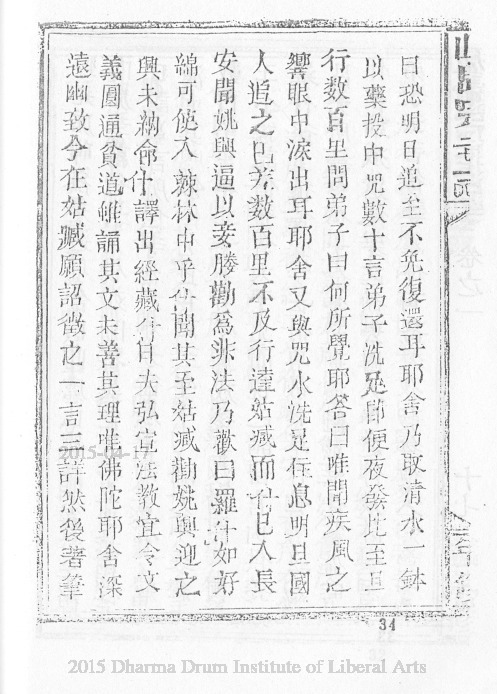 曰恐明日追至不免復還耳耶舍乃取清水一鉢
以藥投中咒數十言弟子洗足卽便夜發比至旦
行数百里問弟子曰何所覺耶答曰唯聞疾風之
響眼中淚出耳耶舍又與咒水洗足住息明旦國
人追之已差数百里不及行達姑臧而什已入長
安聞姚興逼以妾媵勸爲非法乃歎曰羅什如好
綿可使入棘林中乎什聞其至姑臧勸姚興迎之
興未納命什譯出經藏什曰夫弘宣法教宜令文
義圓通貧道雖誦其文未善其理唯佛陀耶舍深
遠幽致今在姑臧願詔徵之一言三詳然後著筆
2015-04-17
34
2015 Dharma Drum Institute of Liberal Arts